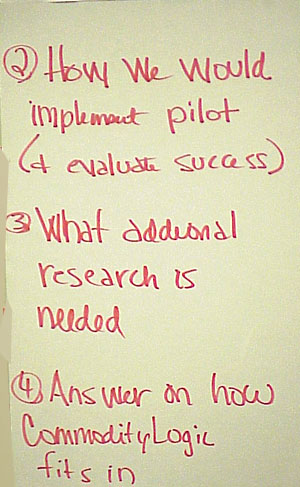 ② How We Would
implement pilot
(& evaluate success)
③ What addional
research is
needed
④ Answer on how
CommodityLogic
fits in